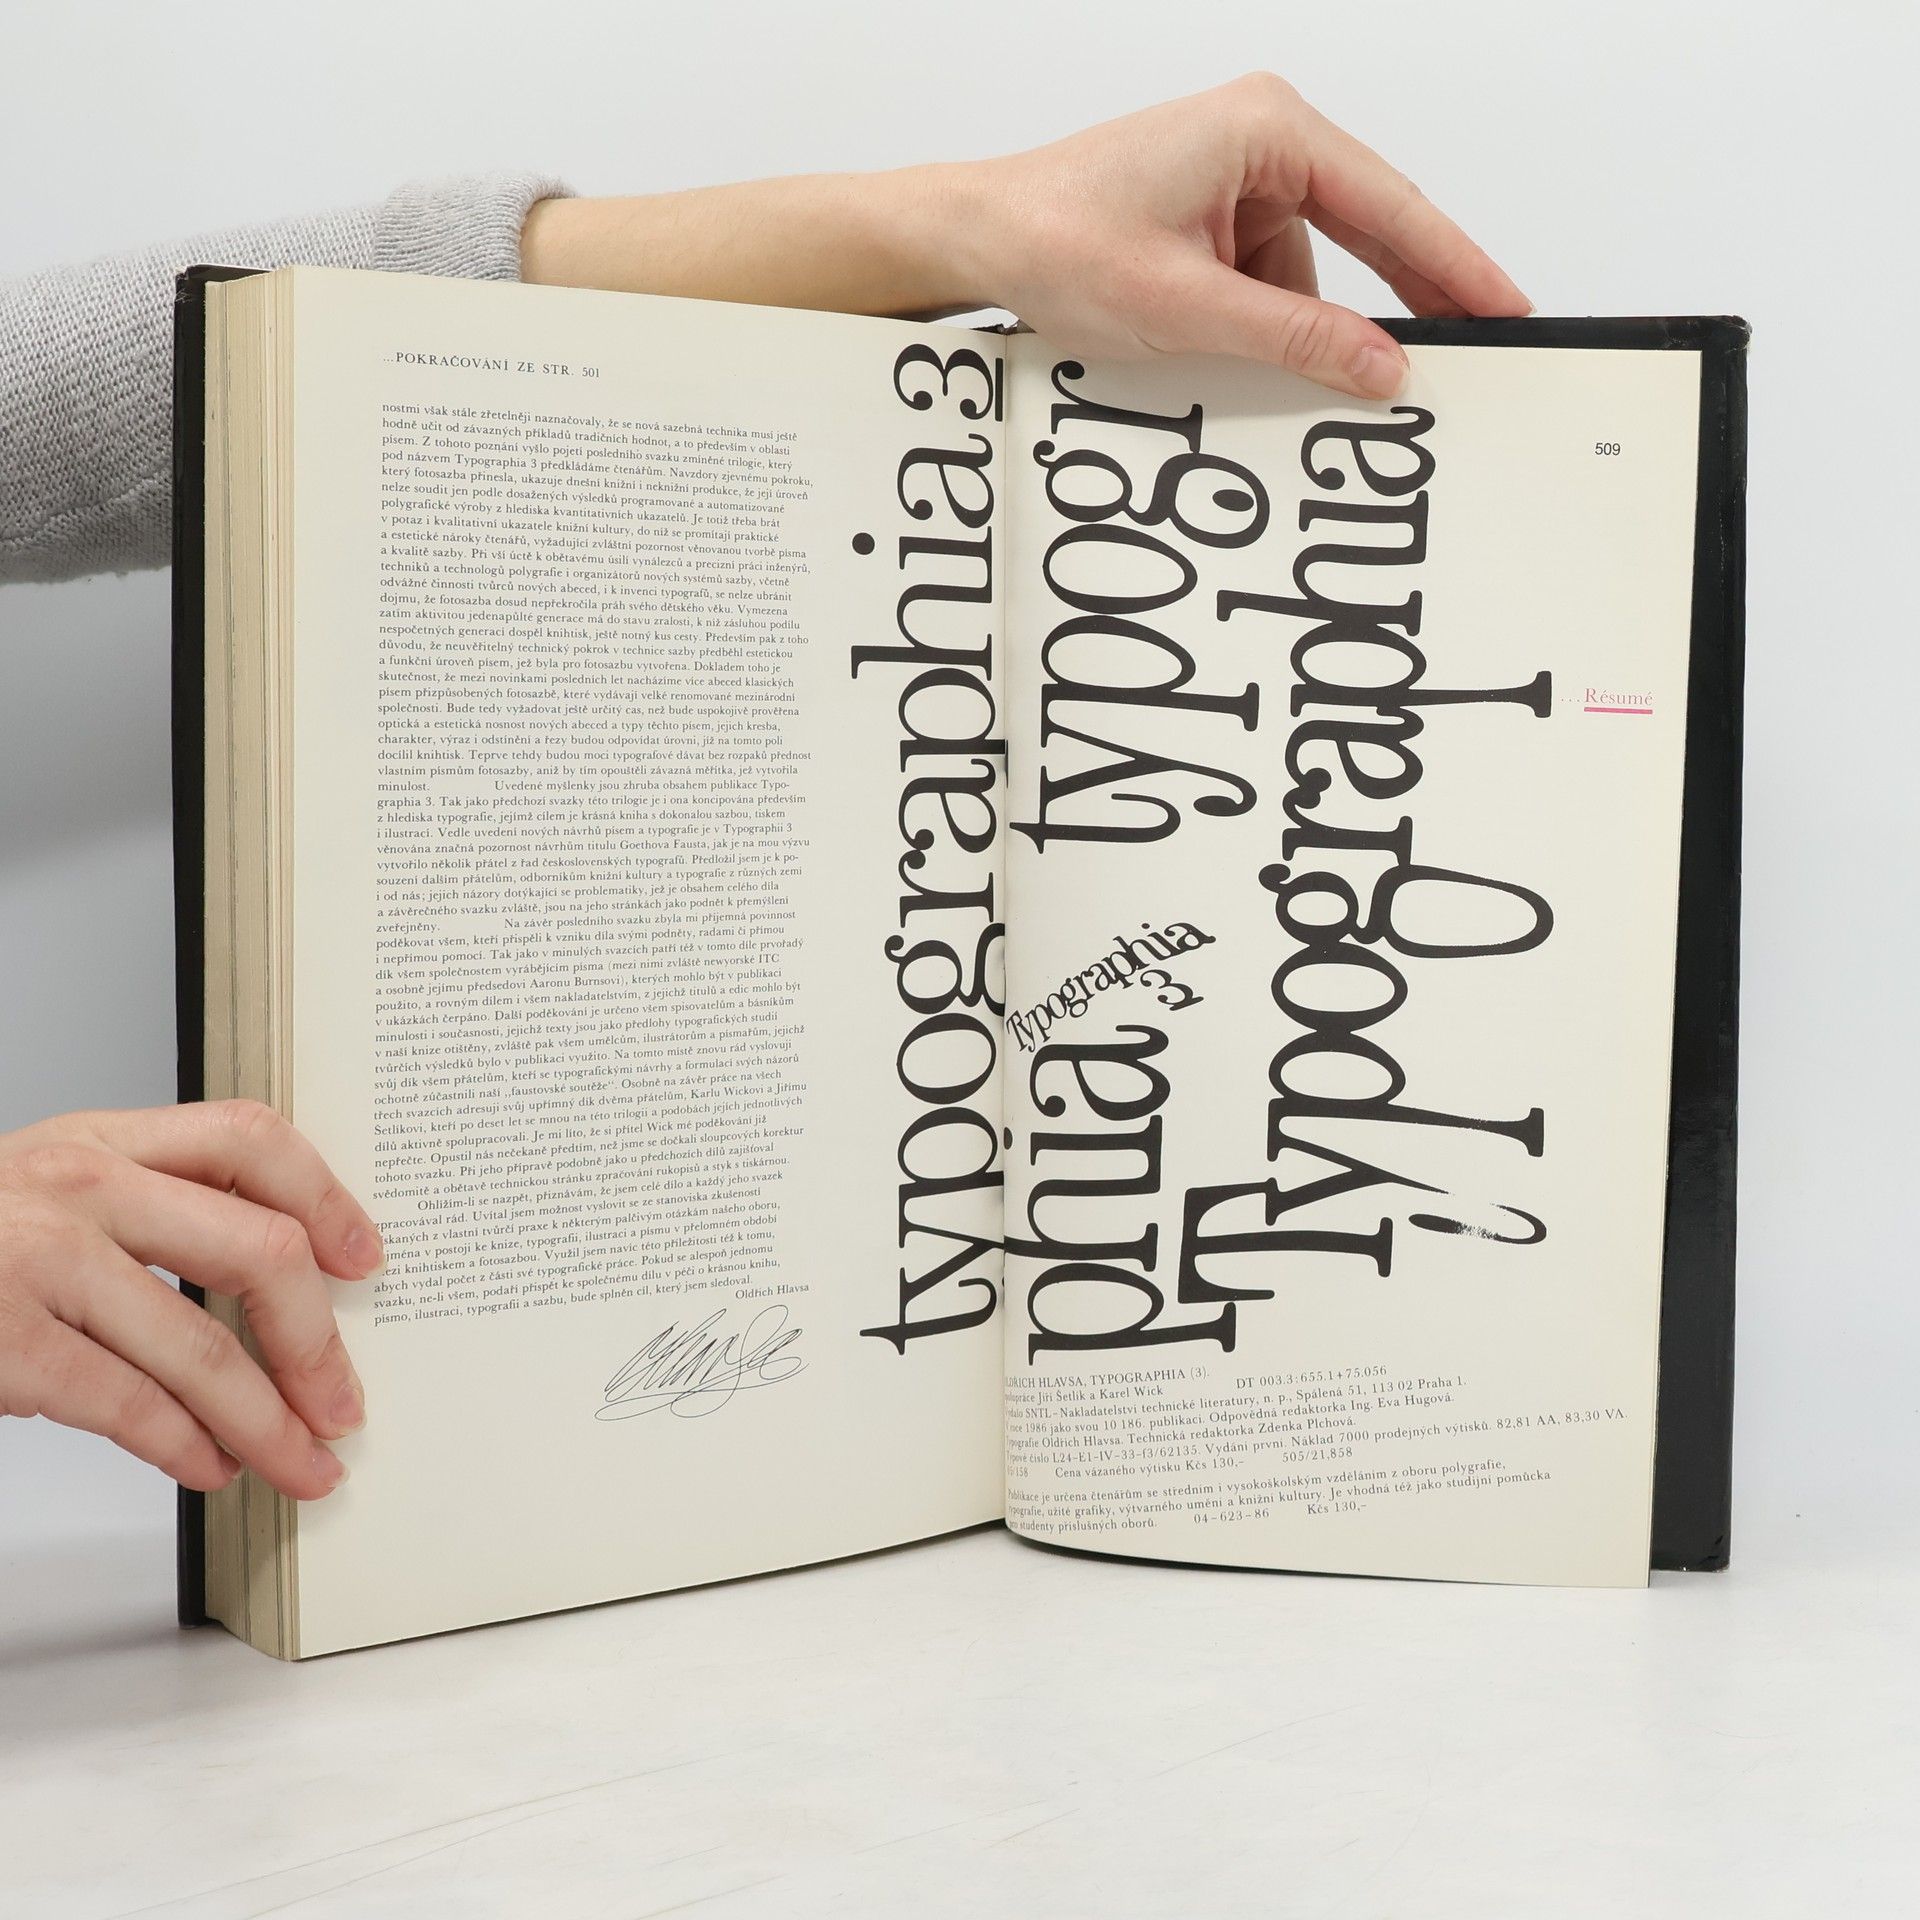 ...POKRAČOVÁNÍ ZE STR. 501
nostmi však stále zřetelněji naznačovaly, že se nová sazebná technika musí ještě
hodně učit od závazných příkladů tradičních hodnot, a to především v oblasti
písem. Z tohoto poznání vyšlo pojetí posledního svazku zmíněné trilogie, který
pod názvem Typographia 3 předkládáme čtenářům. Navzdory zjevnému pokroku,
který fotosazba přinesla, ukazuje dnešní knižní i neknižní produkce, že její úroveň
nelze soudit jen podle dosažených výsledků programované a automatizované
polygrafické výroby z hlediska kvantitativních ukazatelů. Je totiž třeba brát
v potaz i kvalitativní ukazatele knižní kultury, do níž se promítají praktické
a estetické nároky čtenářů, vyžadující zvláštní pozornost věnovanou tvorbě písma
a kvalitě sazby. Při vší úctě k obětavému úsilí vynálezců a precizní práci inženýrů,
techniků a technologů polygrafie i organizátorů nových systémů sazby, včetně
odvážné činnosti tvůrců nových abeced, i k invenci typografů, se nelze ubránit
dojmu, že fotosazba dosud nepřekročila práh svého dětského věku. Vymezena
zatím aktivitou jedenapůlté generace má do stavu zralosti, k níž zásluhou podílu
nespočetných generací dospěl knihtisk, ještě notný kus cesty. Především pak z toho
důvodu, že neuvěřitelný technický pokrok v technice sazby předběhl estetickou
a funkční úroveň písem, jež byla pro fotosazbu vytvořena. Dokladem toho je
skutečnost, že mezi novinkami posledních let nacházíme více abeced klasických
písem přizpůsobených fotosazbě, které vydávají velké renomované mezinárodní
společnosti. Bude tedy vyžadovat ještě určitý čas, než bude uspokojivě prověřena
optická a estetická nosnost nových abeced a typy těchto písem, jejich kresba,
charakter, výraz i odstínění a řezy budou odpovídat úrovni, již na tomto poli
docílil knihtisk. Teprve tehdy budou moci typografové dávat bez rozpaků přednost
vlastním písmům fotosazby, aniž by tím opouštěli závazná měřítka, jež vytvořila
minulost. Uvedené myšlenky jsou zhruba obsahem publikace Typo-
graphia 3. Tak jako předchozí svazky této trilogie je i ona koncipována především
z hlediska typografie, jejímž cílem je krásná kniha s dokonalou sazbou, tiskem
i ilustrací. Vedle uvedení nových návrhů písem a typografie je v Typographii 3
věnována značná pozornost návrhům titulu Goethova Fausta, jak je na mou výzvu
vytvořilo několik přátel z řad československých typografů. Předložil jsem je k po-
souzení dalším přátelům, odborníkům knižní kultury a typografie z různých zemí
i od nás; jejich názory dotýkající se problematiky, jež je obsahem celého díla
a závěrečného svazku zvláště, jsou na jeho stránkách jako podnět k přemýšlení
zveřejněny. Na závěr posledního svazku zbyla mi příjemná povinnost
poděkovat všem, kteří přispěli k vzniku díla svými podněty, radami či přímou
i nepřímou pomocí. Tak jako v minulých svazcích patří též v tomto díle prvořadý
dík všem společnostem vyrábějícím písma (mezi nimi zvláště newyorské ITC
a osobně jejímu předsedovi Aaronu Burnsovi), kterých mohlo být v publikaci
použito, a rovným dílem i všem nakladatelstvím, z jejichž titulů a edic mohlo být
v ukázkách čerpáno. Další poděkování je určeno všem spisovatelům a básníkům
minulosti i současnosti, jejichž texty jsou jako předlohy typografických studií
v naší knize otištěny, zvláště pak všem umělcům, ilustrátorům a písmařům, jejichž
tvůrčích výsledků bylo v publikaci využito. Na tomto místě znovu rád vyslovuji
svůj dík všem přátelům, kteří se typografickými návrhy a formulací svých názorů
ochotně zúčastnili naší „faustovské soutěže“. Osobně na závěr práce na všech
třech svazcích adresuji svůj upřímný dík dvěma přátelům, Karlu Wickovi a Jiřímu
Šetlíkovi, kteří po deset let se mnou na této trilogii a podobách jejích jednotlivých
dílů aktivně spolupracovali. Je mi líto, že si přítel Wick mé poděkování již
nepřečte. Opustil nás nečekaně předtím, než jsme se dočkali sloupcových korektur
tohoto svazku. Při jeho přípravě podobně jako u předchozích dílů zajišťoval
svědomitě a obětavě technickou stránku zpracování rukopisů a styk s tiskárnou.
Ohlížím-li se nazpět, přiznávám, že jsem celé dílo a každý jeho svazek
zpracovával rád. Uvítal jsem možnost vyslovit se ze stanoviska zkušeností
ískaných z vlastní tvůrčí praxe k některým palčivým otázkám našeho oboru,
jména v postoji ke knize, typografii, ilustraci a písmu v přelomném období
mezi knihtiskem a fotosazbou. Využil jsem navíc této příležitosti též k tomu,
abych vydal počet z části své typografické práce. Pokud se alespoň jednomu
svazku, ne-li všem, podaří přispět ke společnému dílu v péči o krásnou knihu,
písmo, ilustraci, typografii a sazbu, bude splněn cíl, který jsem sledoval.
Oldřich Hlavsa
typographia 3
typogr
phia
Typographia
3
Typographia
509
...Résumé
LDŘICH HLAVSA, TYPOGRAPHIA (3).
polupráce Jiří Šetlík a Karel Wick DT 003.3:655.1+75.056
ydalo SNTL-Nakladatelství technické literatury, n. p., Spálená 51, 113 02 Praha 1.
V roce 1986 jako svou 10 186. publikaci. Odpovědná redaktorka Ing. Eva Hugová.
Typografie Oldřich Hlavsa. Technická redaktorka Zdenka Plchová.
Typové číslo L24-E1-IV-33-f3/62135. Vydání první. Náklad 7000 prodejných výtisků. 82,81 AA, 83,30 VA.
05/158 Cena vázaného výtisku Kčs 130,- 505/21,858
Publikace je určena čtenářům se středním i vysokoškolským vzděláním z oboru polygrafie,
typografie, užité grafiky, výtvarného umění a knižní kultury. Je vhodná též jako studijní pomůcka
pro studenty příslušných oborů. 04-623-86 Kčs 130,-